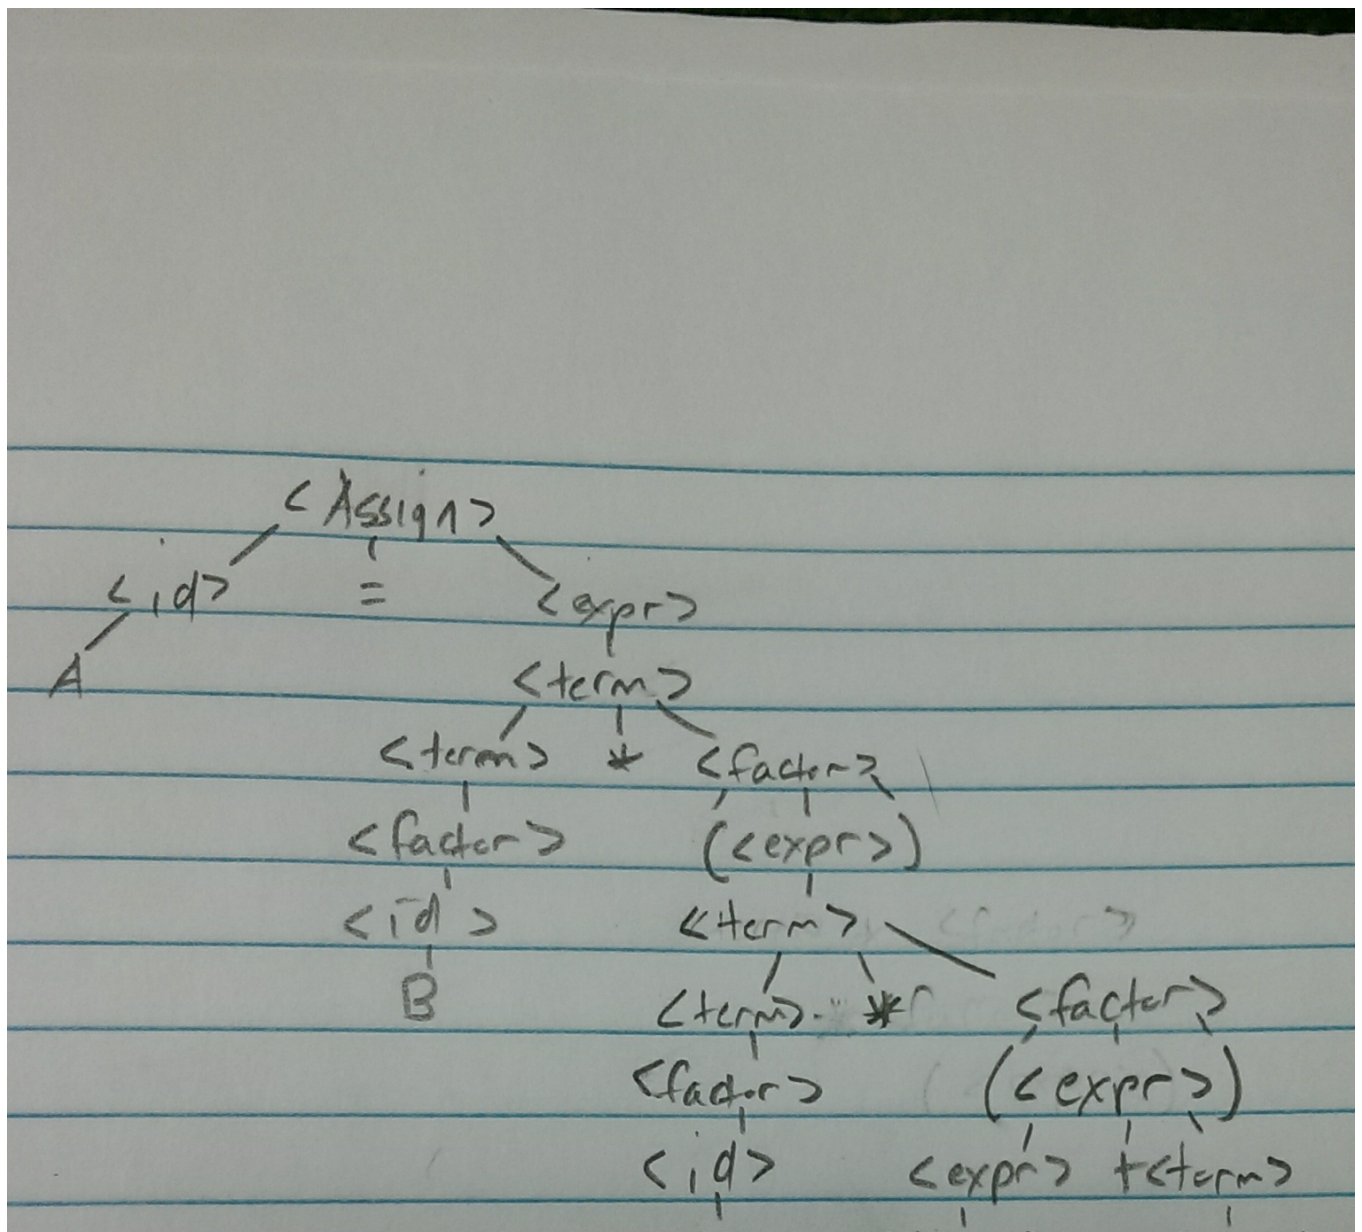 <Assign>
<id> = <expr>
A <term>
<term> * <factor>
<factor> (<expr>)
<id> <term>
B <term> * <factor>
<factor> (<expr>)
<id> <expr> + <term>